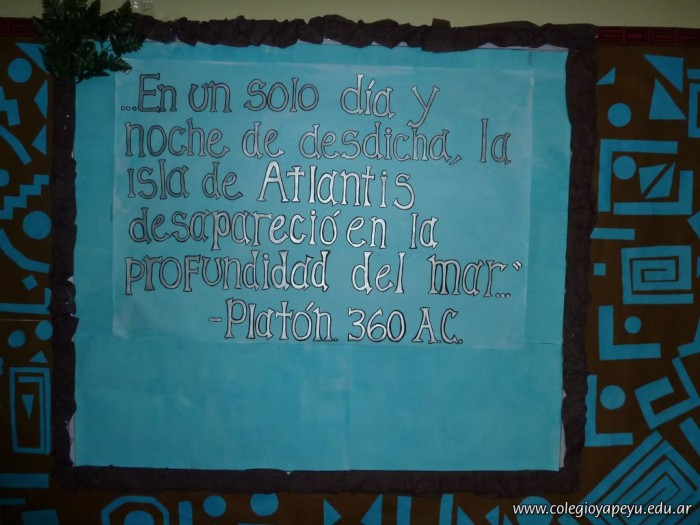 ...En un solo día y
noche de desdicha, la
isla de Atlantis
desapareció en la
profundidad del mar..."
-Platón. 360 A.C.
www.colegioyapeyu.edu.ar